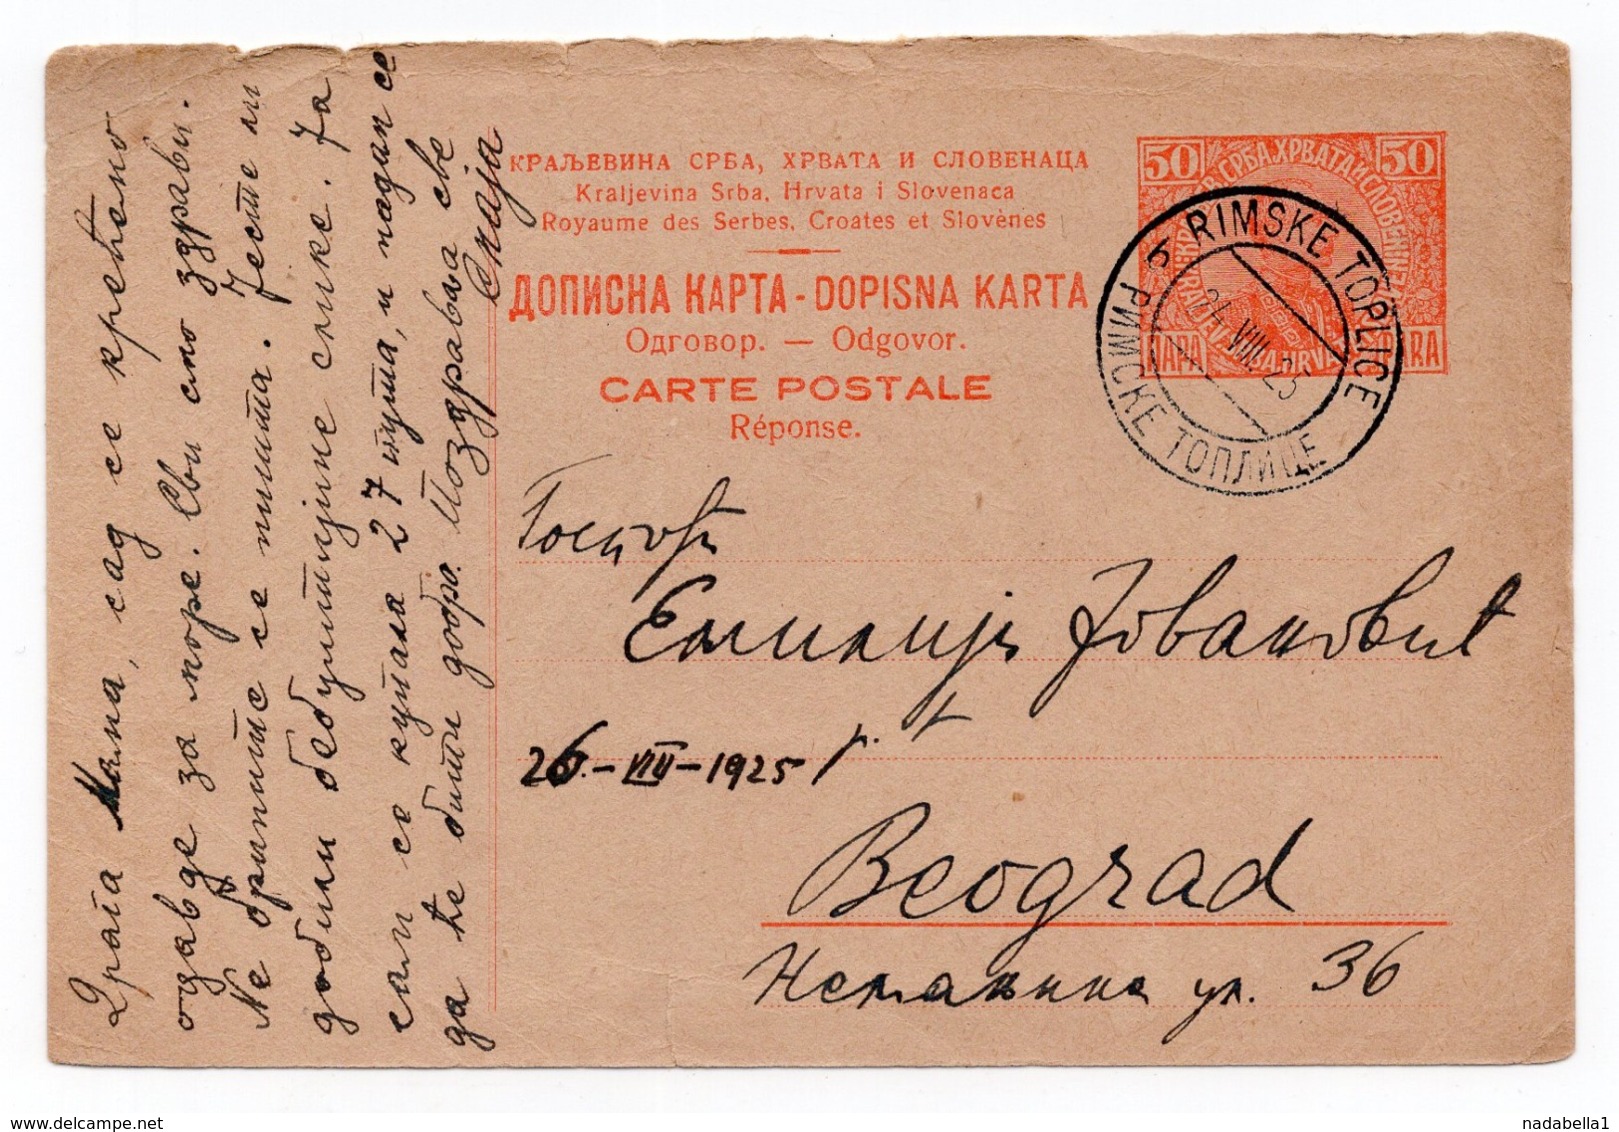 Драга Мама, сад се крећемо
одавде за море. Сви смо здрави.
Не брините се ништа. Јесте ли
добили безушијне слике. Ја
сам се купала 27 пута, и надам се
да ће бити добро. Поздравља све
Снаја
КРАЉЕВИНА СРБА, ХРВАТА И СЛОВЕНАЦА
Kraljevina Srba, Hrvata i Slovenaca
Royaume des Serbes, Croates et Slovènes
ДОПИСНА КАРТА - DOPISNA KARTA
Одговор. — Odgovor.
CARTE POSTALE
Réponse.
50 50
ПАРА PARA
RIMSKE TOPLICE
РИМСКЕ ТОПЛИЦЕ
24. VIII. 25
Госпођи
Емилији Јовановић
26.-VIII-1925
Beograd
Немањина ул. 36
nadabella1